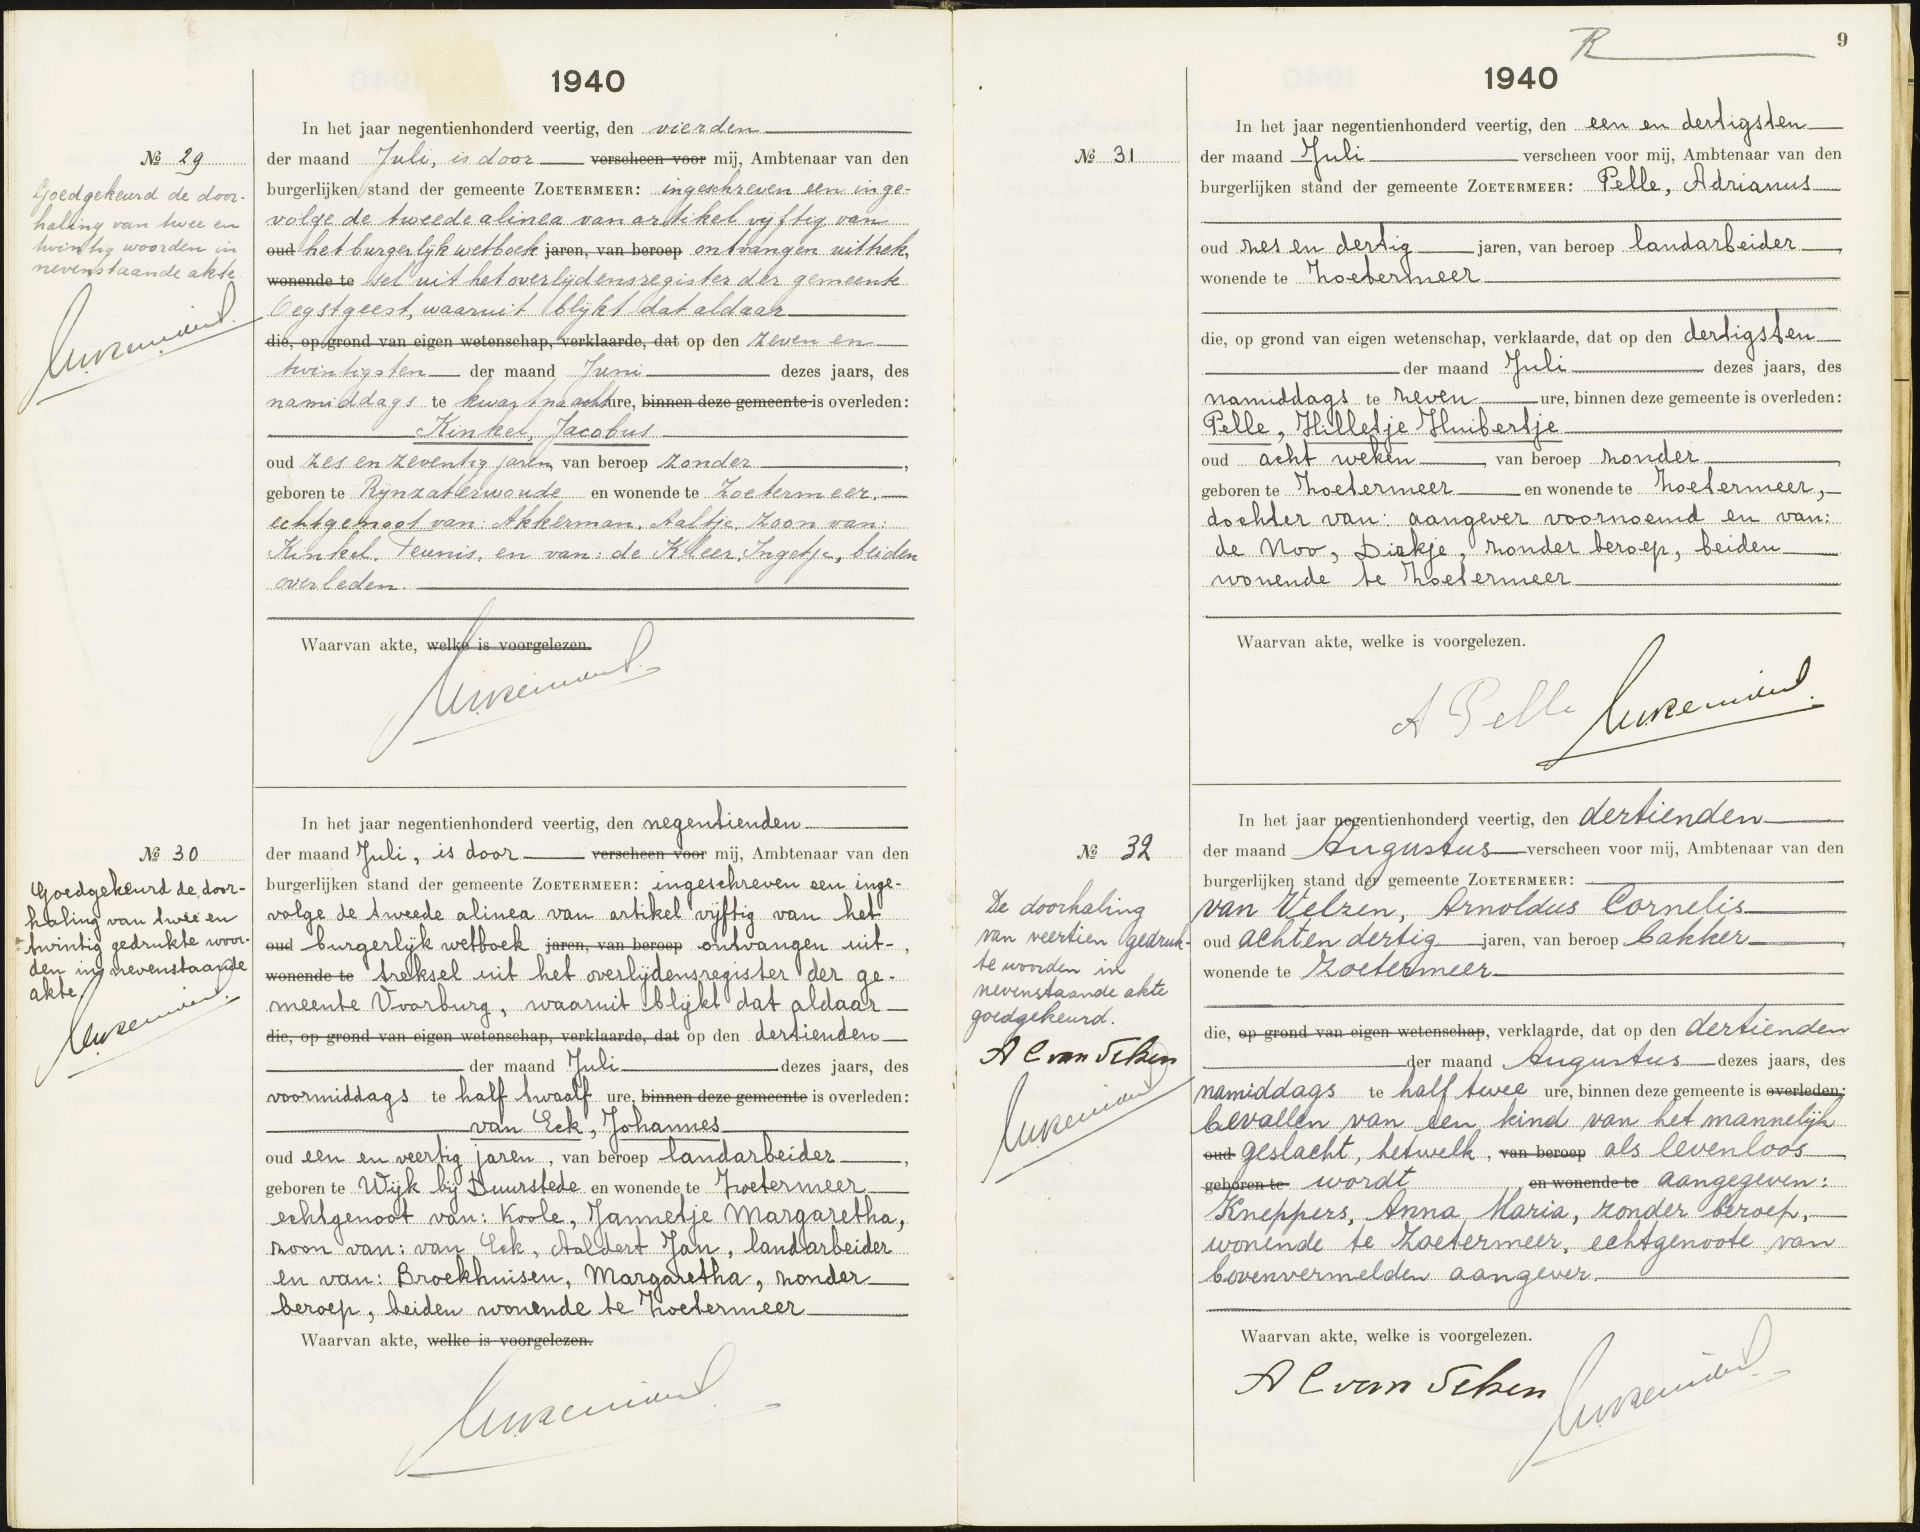 1940
In het jaar negentienhonderd veertig, den vierden
№ 29
der maand Juli, is door verscheen voor mij, Ambtenaar van den
burgerlijken stand der gemeente ZOETERMEER: ingeschreven een inge-
volge de tweede alinea van artikel vijftig van
oud het burgerlijk wetboek jaren, van beroep ontvangen uittrek,
wonende te sel uit het overlijdensregister der gemeente
Oegstgeest, waaruit blijkt dat aldaar
die, op grond van eigen wetenschap, verklaarde, dat op den zeven en
twintigsten der maand Juni dezes jaars, des
namiddags te kwart na acht ure, binnen deze gemeente is overleden:
Kinkel, Jacobus
oud zes en zeventig jaren, van beroep zonder,
geboren te Rijnzaterwoude en wonende te Zoetermeer.
echtgenoot van: Akkerman, Aaltje, zoon van:
Kinkel, Teunis, en van: de Kleer, Ingetje, beiden
overleden.
Waarvan akte, welke is voorgelezen.
Goedgekeurd de door-
haling van twee en
twintig woorden in
nevenstaande akte
In het jaar negentienhonderd veertig, den negentienden
№ 30
der maand Juli, is door verscheen voor mij, Ambtenaar van den
burgerlijken stand der gemeente ZOETERMEER: ingeschreven een inge-
volge de tweede alinea van artikel vijftig van het
oud burgerlijk wetboek jaren, van beroep ontvangen uit-,
wonende te treksel uit het overlijdensregister der ge-
meente Voorburg, waaruit blijkt dat aldaar
die, op grond van eigen wetenschap, verklaarde, dat op den dertienden
der maand Juli dezes jaars, des
voormiddags te half twaalf ure, binnen deze gemeente is overleden:
van Eck, Johannes
oud een en veertig jaren, van beroep landarbeider,
geboren te Wijk bij Duurstede en wonende te Zoetermeer
echtgenoot van: Koole, Jannetje Margaretha,
zoon van: van Eck, Aaldert Jan, landarbeider
en van: Broekhuisen, Margaretha, zonder
beroep, beiden wonende te Zoetermeer
Waarvan akte, welke is voorgelezen.
Goedgekeurd de door-
haling van twee en
twintig gedrukte woor-
den in nevenstaande
akte.
R
9
1940
In het jaar negentienhonderd veertig, den een en dertigsten
№ 31
der maand Juli verscheen voor mij, Ambtenaar van den
burgerlijken stand der gemeente ZOETERMEER: Pelle, Adrianus
oud zes en dertig jaren, van beroep landarbeider,
wonende te Zoetermeer
die, op grond van eigen wetenschap, verklaarde, dat op den dertigsten
der maand Juli dezes jaars, des
namiddags te zeven ure, binnen deze gemeente is overleden:
Pelle, Hilletje Huibertje
oud acht weken, van beroep zonder,
geboren te Zoetermeer en wonende te Zoetermeer,
dochter van: aangever voornoemd en van:
de Noo, Dirkje, zonder beroep, beiden
wonende te Zoetermeer
Waarvan akte, welke is voorgelezen.
A Pelle
In het jaar negentienhonderd veertig, den dertienden
№ 32
der maand Augustus verscheen voor mij, Ambtenaar van den
burgerlijken stand der gemeente ZOETERMEER:
van Velzen, Arnoldus Cornelis
oud acht en dertig jaren, van beroep bakker,
wonende te Zoetermeer
die, op grond van eigen wetenschap, verklaarde, dat op den dertienden
der maand Augustus dezes jaars, des
namiddags te half twee ure, binnen deze gemeente is overleden:
bevallen van een kind van het mannelijk
oud geslacht, hetwelk, van beroep als levenloos
geboren te wordt en wonende te aangegeven:
Kneppers, Anna Maria, zonder beroep,
wonende te Zoetermeer, echtgenoote van
bovenvermelden aangever.
Waarvan akte, welke is voorgelezen.
A C van Velzen
De doorhaling
van veertien gedruk-
te woorden in
nevenstaande akte
goedgekeurd.
A C van Velzen